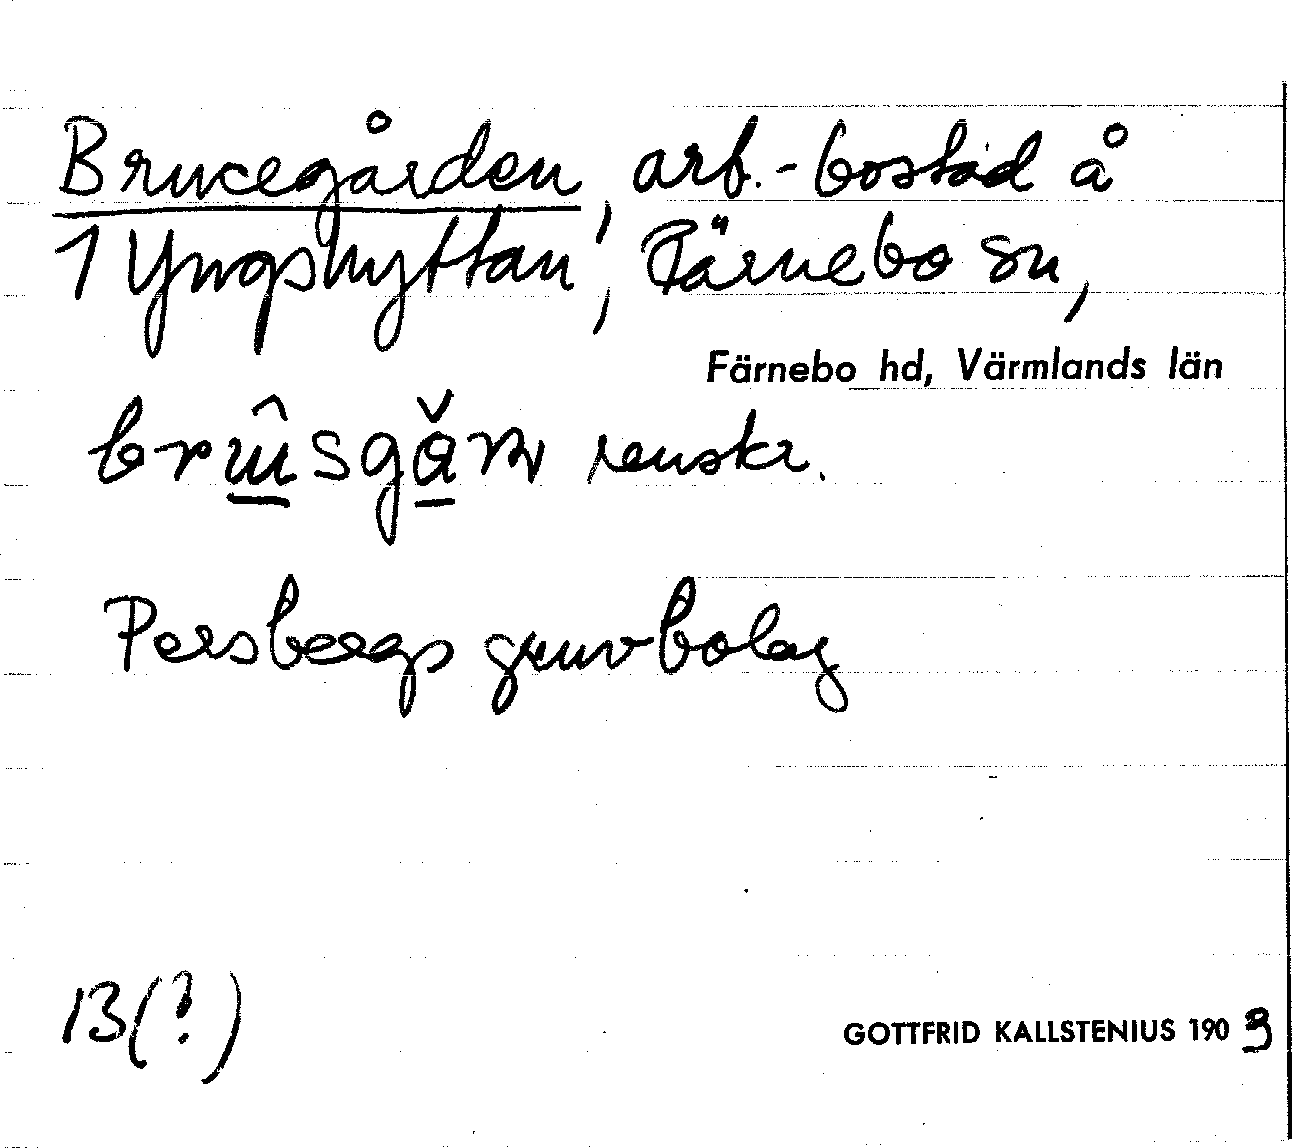 Brucegården, arb.-bostad å
1 Yngshyttan, Färnebo sn,
Färnebo hd, Värmlands län
renskr.
Persbergs gruvbolag
13(?)
GOTTFRID KALLSTENIUS 1903